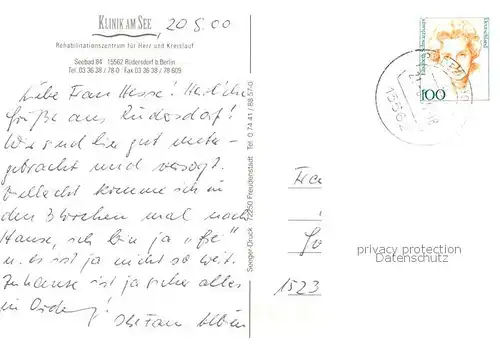 KLINIK AM SEE
20.8.00
Rehabilitationszentrum für Herz und Kreislauf
Seebad 84 15562 Rüdersdorf b.Berlin
Tel. 03 36 38 / 78-0 Fax 03 36 38 / 78 609
Liebe Frau Hesse! Herzliche
Grüße aus Rüdersdorf!
Wir sind hier gut unter-
gebracht und versorgt.
Vielleicht komme ich in
den 3 Wochen mal nach
Hause, ich bin ja
u. es ist ja nicht so weit.
Zuhause ist ja sicher alles
in Ordng!
Ihre Frau
Seeger-Druck 72250 Freudenstadt Tel. 0 74 41 / 88 57-0
Deutschland
100
15562
1523
privacy protection
Datenschutz